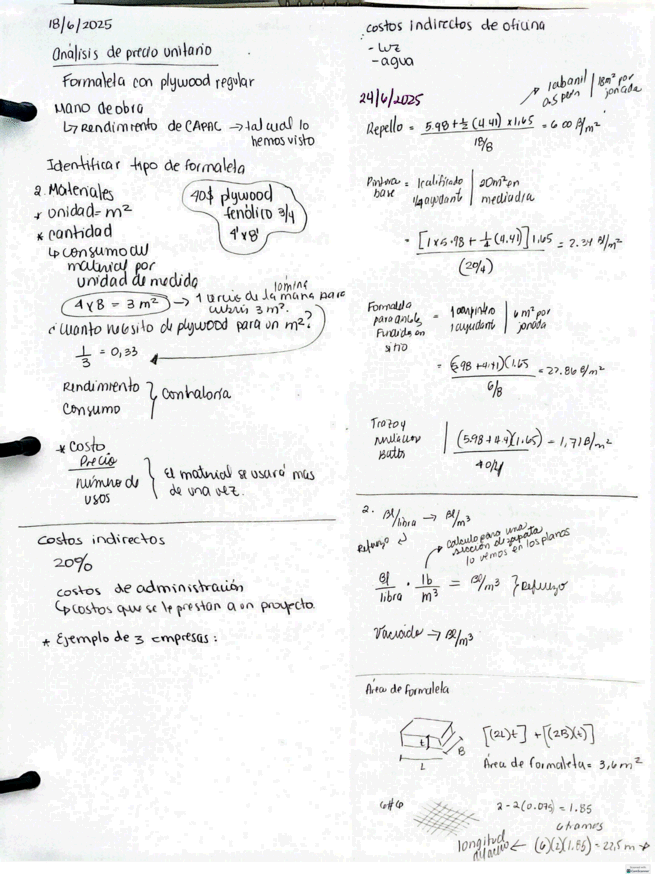 18/6/2025
Análisis de precio unitario
Formaleta con plywood regular
Mano de obra
↳ Rendimiento de CAPAC → tal cual lo
hemos visto
Identificar tipo de formaleta
2. Materiales
* unidad = m²
* cantidad
↳ consumo del
material por
unidad de medida
40$ plywood
fenólico 3/4
4' x 8'
4 x 8 = 3 m² → 1 tercio de la lámina para
cubrir 3 m².
¿Cuanto necesito de plywood para un m²?
1/3 = 0,33
Rendimiento
Consumo } Contraloría
* Costo
Precio
número de
usos } El material se usará mas
de una vez.
Costos indirectos
20%
costos de administración
↳ costos que se le prestan a un proyecto
* Ejemplo de 3 empresas:
costos indirectos de oficina
- luz
- agua
24/6/2025
1 albañil
0.5 peón | 18m² por
jornada
Repello = 5.98 + ½ (4.41) x 1.65 / 18/8 = 6.00 B/m²
Pintura
base = 1 calificado
¼ ayudante | 20m² en
media día
= [1 x 5.98 + ¼ (4.41)] 1.65 / (20/4) = 2.34 B/m²
Formaleta
para
Fundida en
sitio = 1 carpintero
1 ayudante | 6 m² por
jornada
= (5.98 + 4.41)(1.65 / 6/8 = 22.86 B/m²
Trazo y
| (5.98 + 4.4)(1.65) / 40/4 = 1,71 B/m²
2. Bl/libra → Bl/m³
Refuerzo
calculo para una
sección de zapata
lo vemos en los planos
Bl/libra · lb/m³ = Bl/m³ } Refuerzo
Vaciado → Bl/m³
Área de Formaleta
t
B
L
[(2L)t] + [(2B)(t)]
Área de formaleta = 3,6 m²
6#6
2 - 2(0.075) = 1.85
6 tramos
longitud
del acero ← (6)(2)(1.85) = 22,5 m →
CamScanner